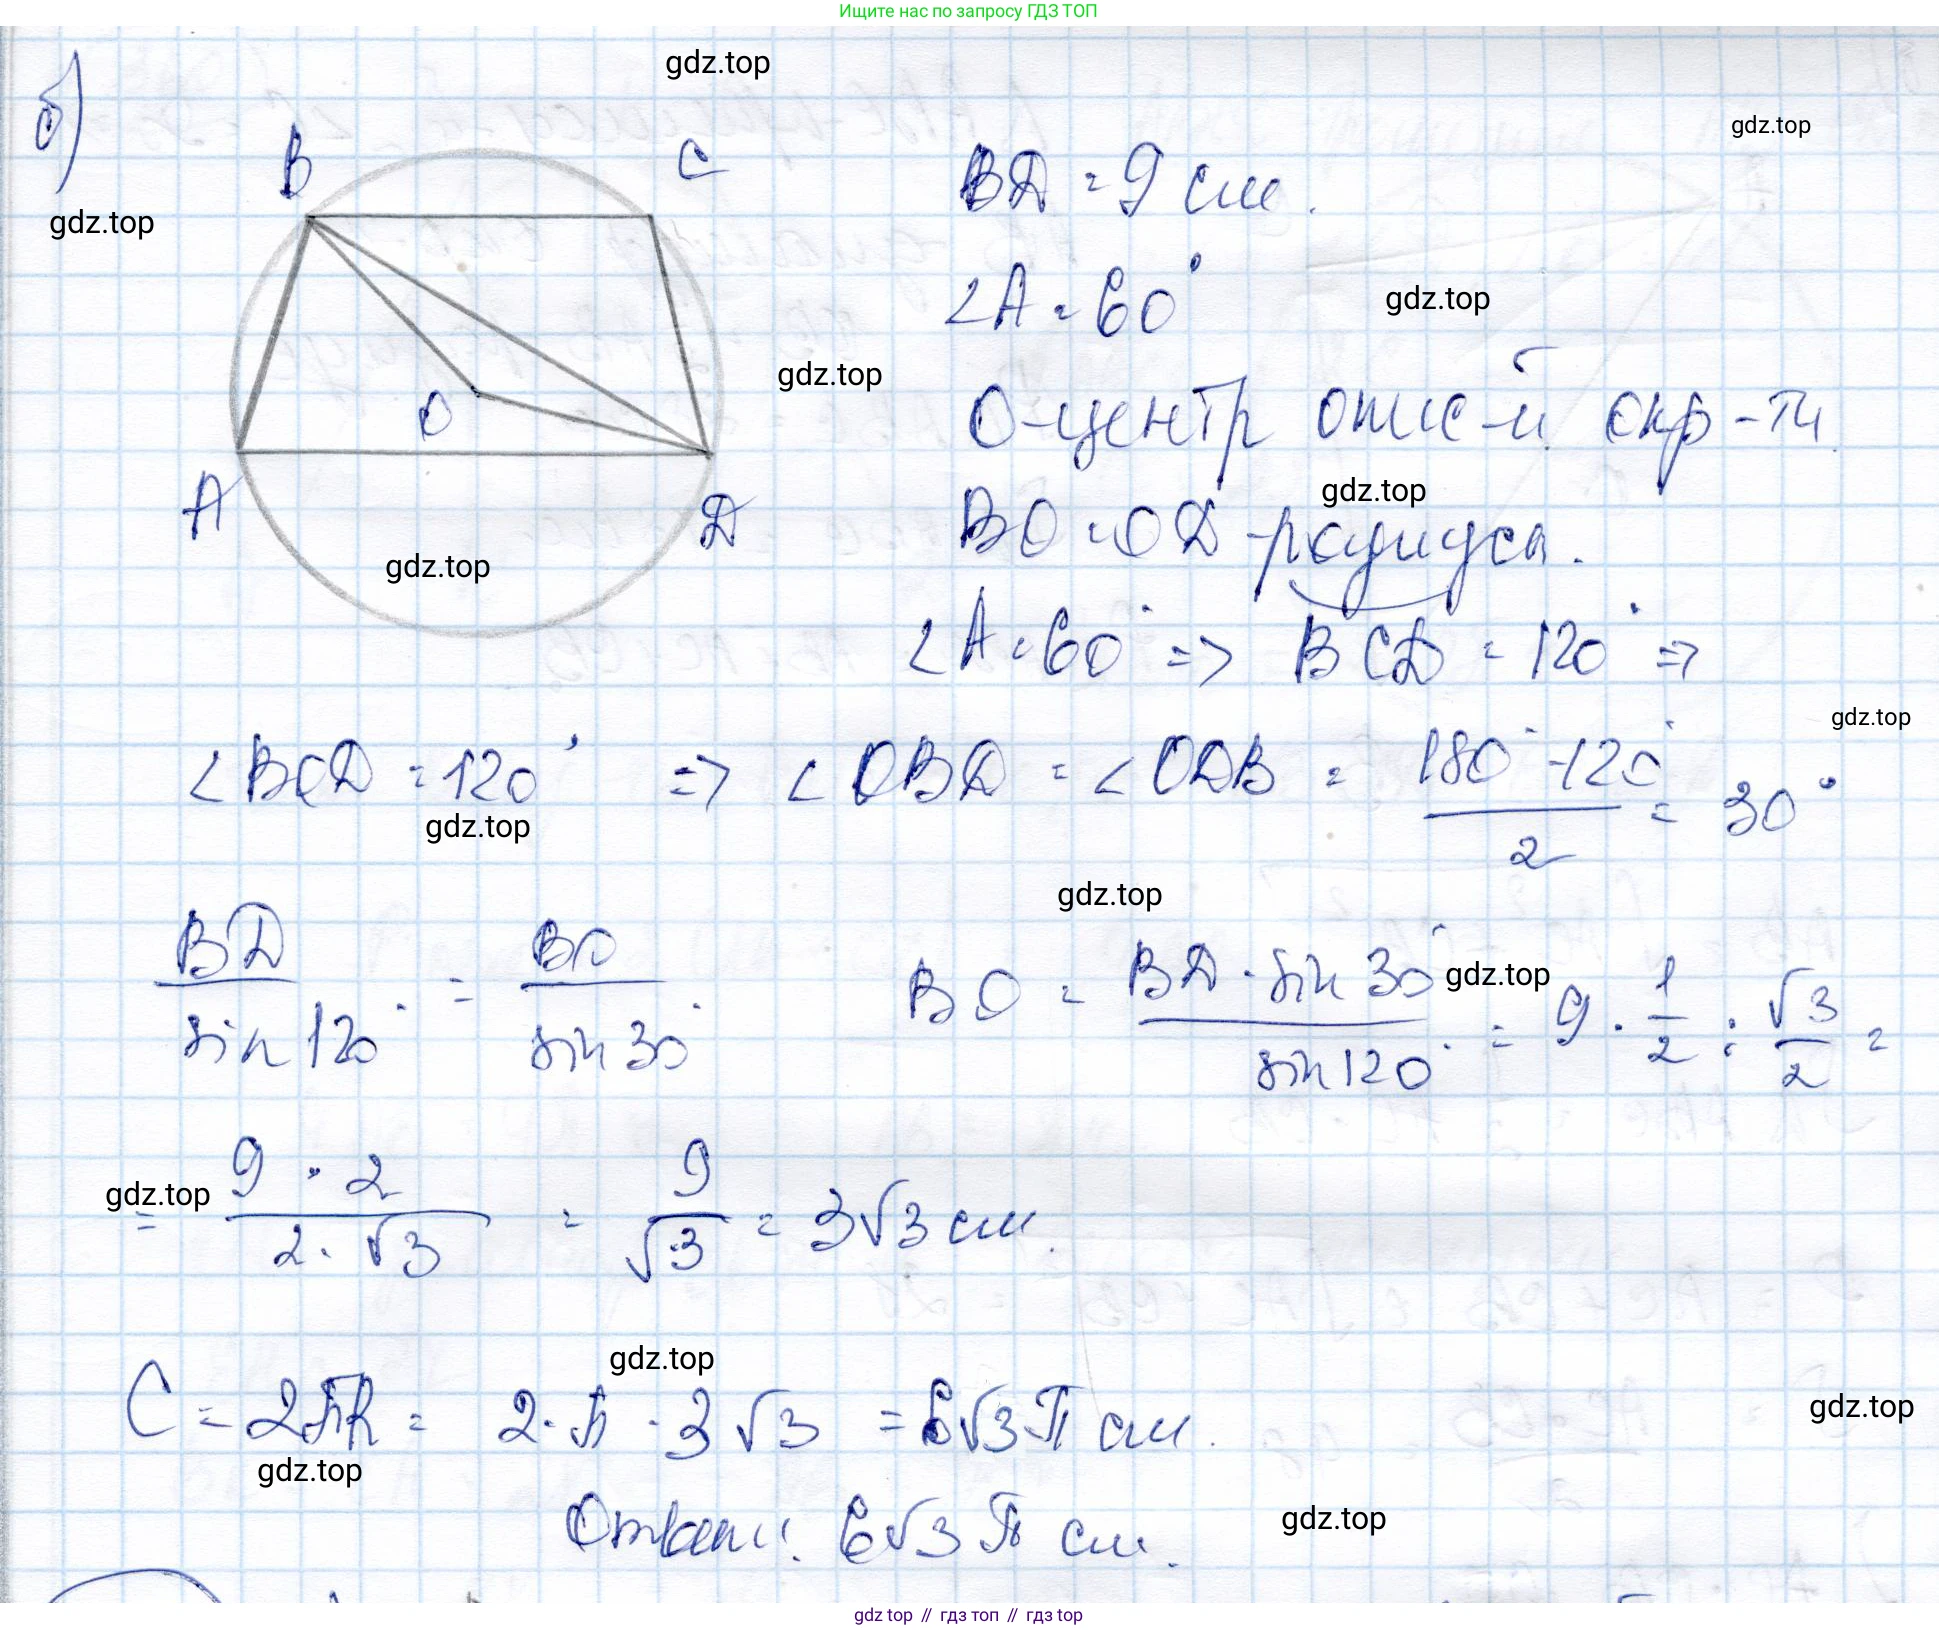 Ищите нас по запросу ГДЗ ТОП
б)
gdz.top
gdz.top
B
C
BD = 9 см.
gdz.top
∠A = 60°
gdz.top
gdz.top
O
O-центр опис-й окр-ти
gdz.top
A
D
BO = OD - радиусы.
gdz.top
∠A = 60° => BCD = 120° =>
gdz.top
∠BCD = 120° => ∠OBD = ∠ODB = (180° - 120°)/2 = 30°
gdz.top
gdz.top
BD/sin 120° = BO/sin 30° BO = BD · sin 30°/sin 120° = 9 · 1/2 : √3/2 =
gdz.top
gdz.top
= 9 · 2/2 · √3 = 9/√3 = 3√3 см.
gdz.top
gdz.top
C = 2πR = 2 · π · 3√3 = 6√3 π см.
gdz.top
gdz.top
Ответ: 6√3 π см.
gdz top // гдз топ // гдз top